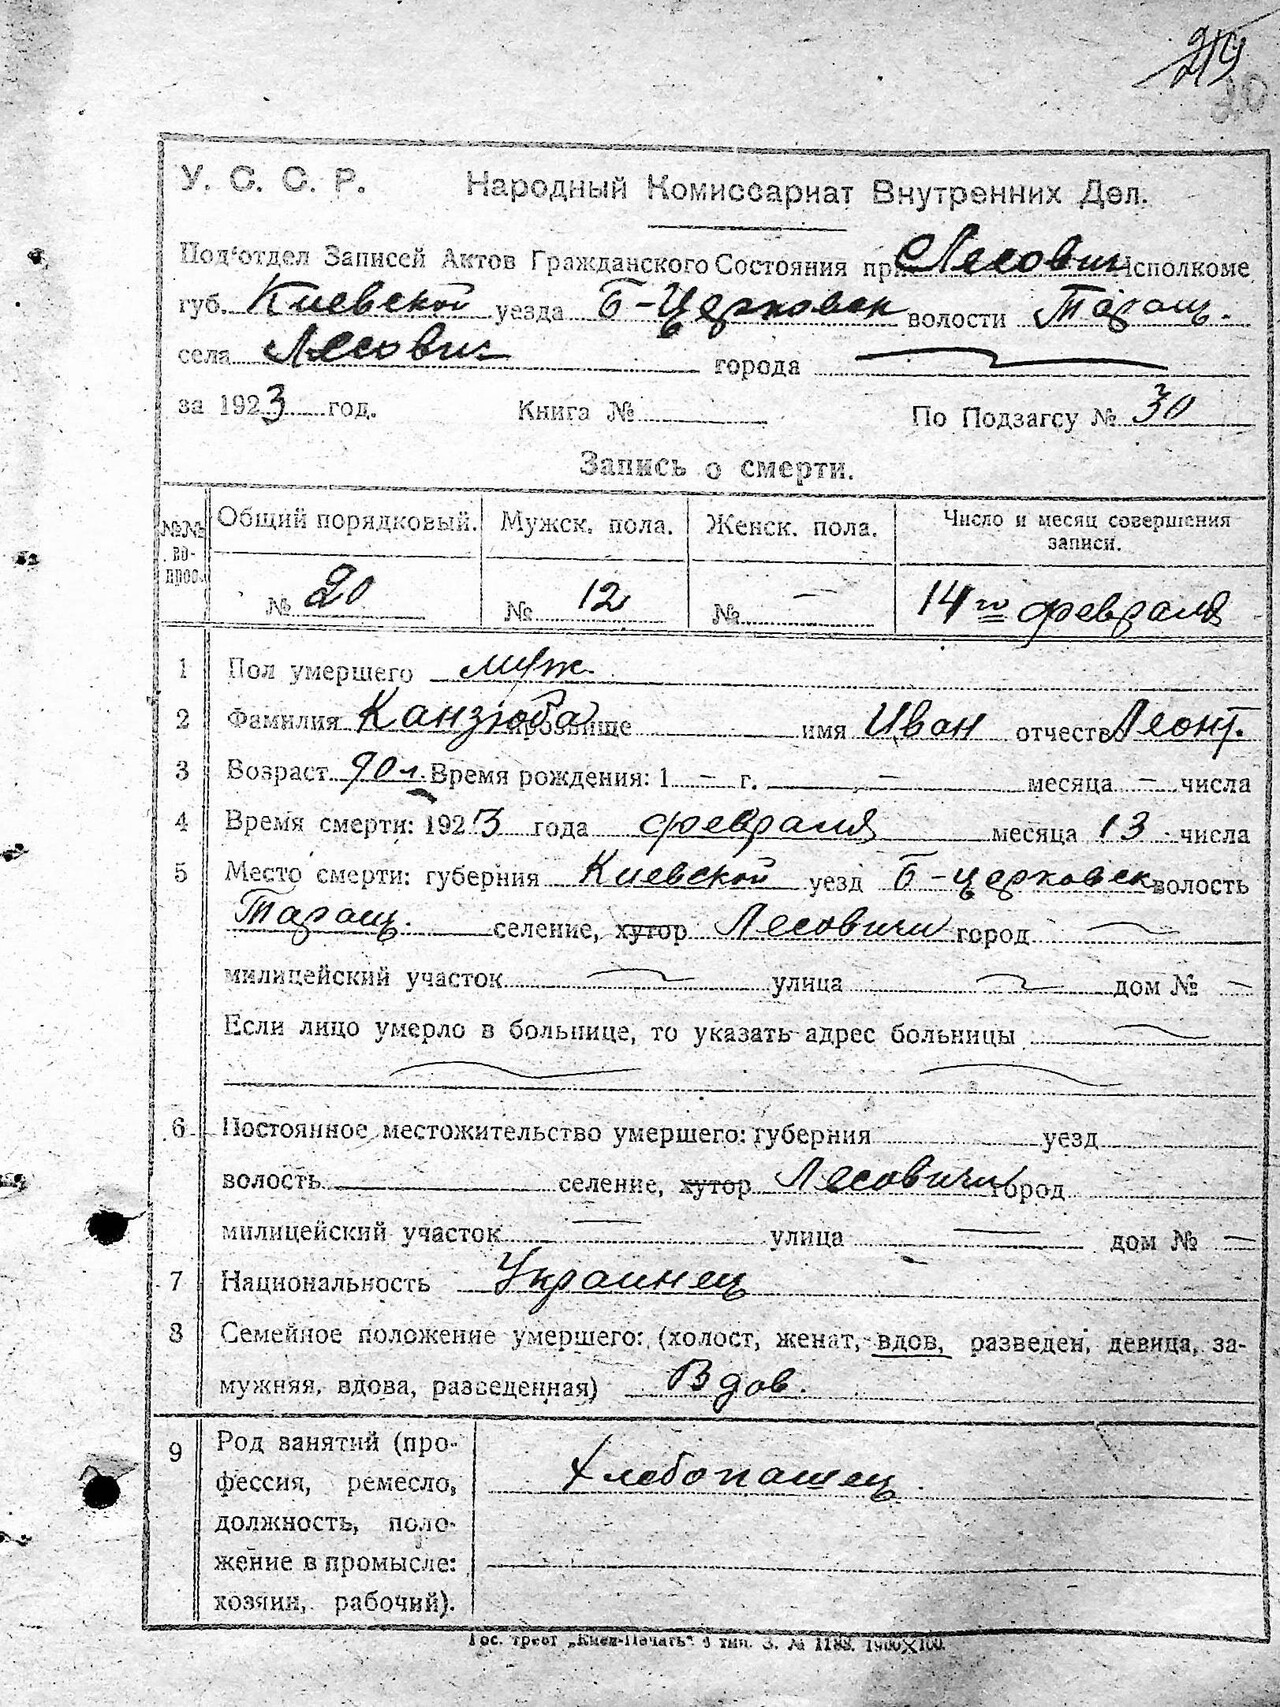 219
20
У. С. С. Р. Народный Комиссариат Внутренних Дел.
Под'отдел Записей Актов Гражданского Состояния при Лесович Исполкоме
губ. Киевской уезда Б-Церковск волости Таращ.
села Лесович города
за 1923 год. Книга № По Подзагсу № 30
Запись о смерти.
№№ вопрос. Общий порядковый. Мужск. пола. Женск. пола. Число и месяц совершения записи.
№ 20 № 12 № — 14го февраля
1 Пол умершего муж.
2 Фамилия Канзюба прозвище имя Иван отчество Леонт.
3 Возраст 90 л. Время рождения: 1 — г. — месяца — числа
4 Время смерти: 1923 года февраля месяца 13 числа
5 Место смерти: губерния Киевской уезд Б-церковск волость
Таращ. селение, хутор Лесовичи город
милицейский участок улица дом № —
Если лицо умерло в больнице, то указать адрес больницы
6 Постоянное местожительство умершего: губерния уезд
волость селение, хутор Лесовичи город
милицейский участок — улица — дом № —
7 Национальность Украинец
8 Семейное положение умершего: (холост, женат, вдов, разведен, девица, за-
мужняя, вдова, разведенная) Вдов.
9 Род занятий (про-
фессия, ремесло, Хлебопашец.
должность, поло-
жение в промысле:
хозяин, рабочий).
Гос. трест „Киев-Печать" 6 тип. З. № 1188. 1900X100.